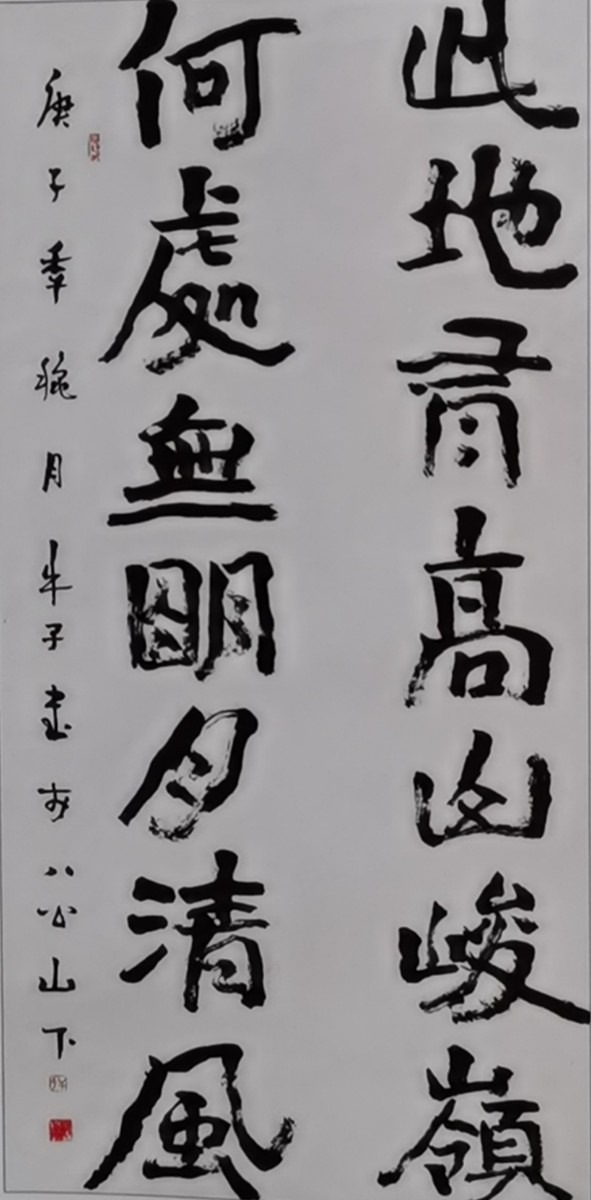 此地有高山峻嶺
何處無明月清風
庚子年桃月牛子書於八公山下